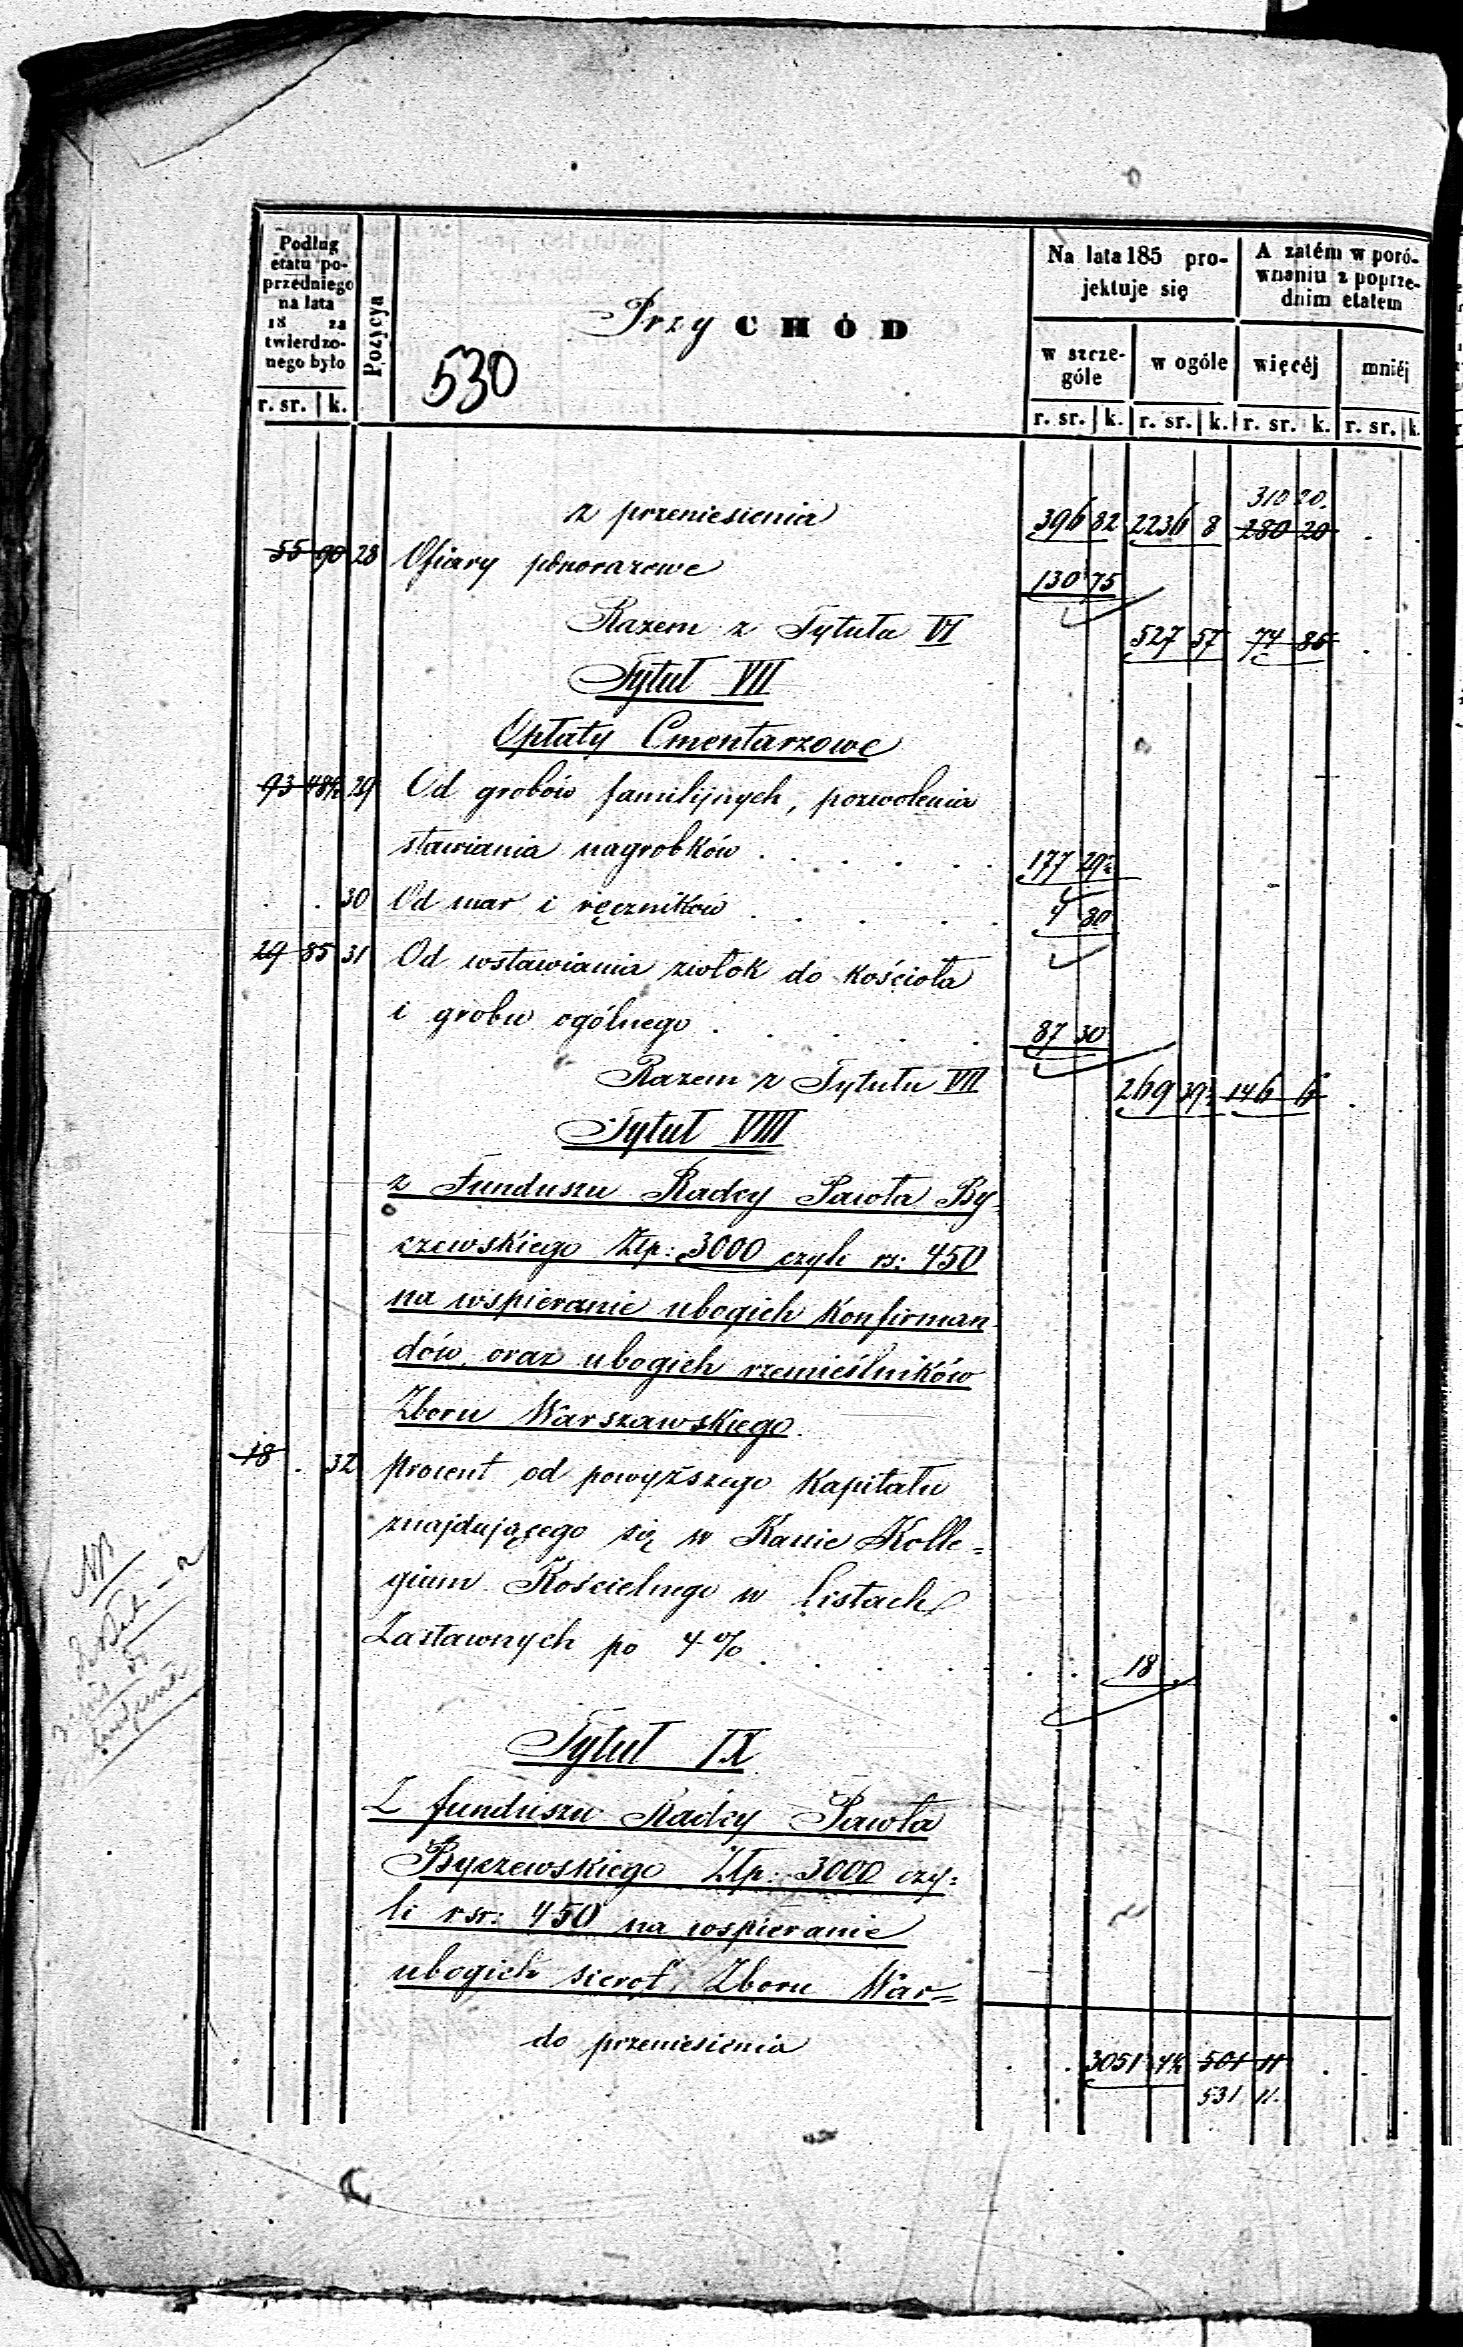 Podług
etatu po-
przedniego
na lata
18 za
twierdzo-
nego było
r. sr. k.
Pozycya
530
PrzyCHÓD
Na lata 185 pro-
jektuje się
w szcze-
góle
w ogóle
r. sr. k. r. sr. k.
A zatém w poró-
wnaniu z poprze-
dnim etatem
więcéj mniéj
r. sr. k. r. sr. k.
310 20.
z przeniesienia 396 82 2236 8 280 20
55 90 28 Ofiary jednorazowe 130 75
Razem z Tytułu VI 527 57 74 85
Tytuł VII
Opłaty Cmentarzowe
93 48½ 29 Od grobów familijnych, pozwolenia
stawiania nagrobków 177 29½
30 Od mar i ręczników 4 80
29 85 31 Od wstawiania zwłok do kościoła
i grobu ogólnego 87 30
Razem z Tytułu VII 269 39½ 146 6
Tytuł VIII
z Funduszu Radcy Pawła By-
czewskiego Złp: 3000 czyli rs: 450
na wspieranie ubogich Konfirman
dów, oraz ubogich rzemieślników
Zboru Warszawskiego.
18 32 procent od powyższego Kapitału
znajdującego się w Kassie Kolle=
gium Kościelnego w Listach
Zastawnych po 4% 18
Tytuł IX
Z funduszu Radcy Pawła
Byczewskiego Złp: 3000 czy=
li rsr: 450 na wspieranie
ubogich sierot Zboru War=
do przeniesienia 3051 4½ 501 11
531 11.
NB